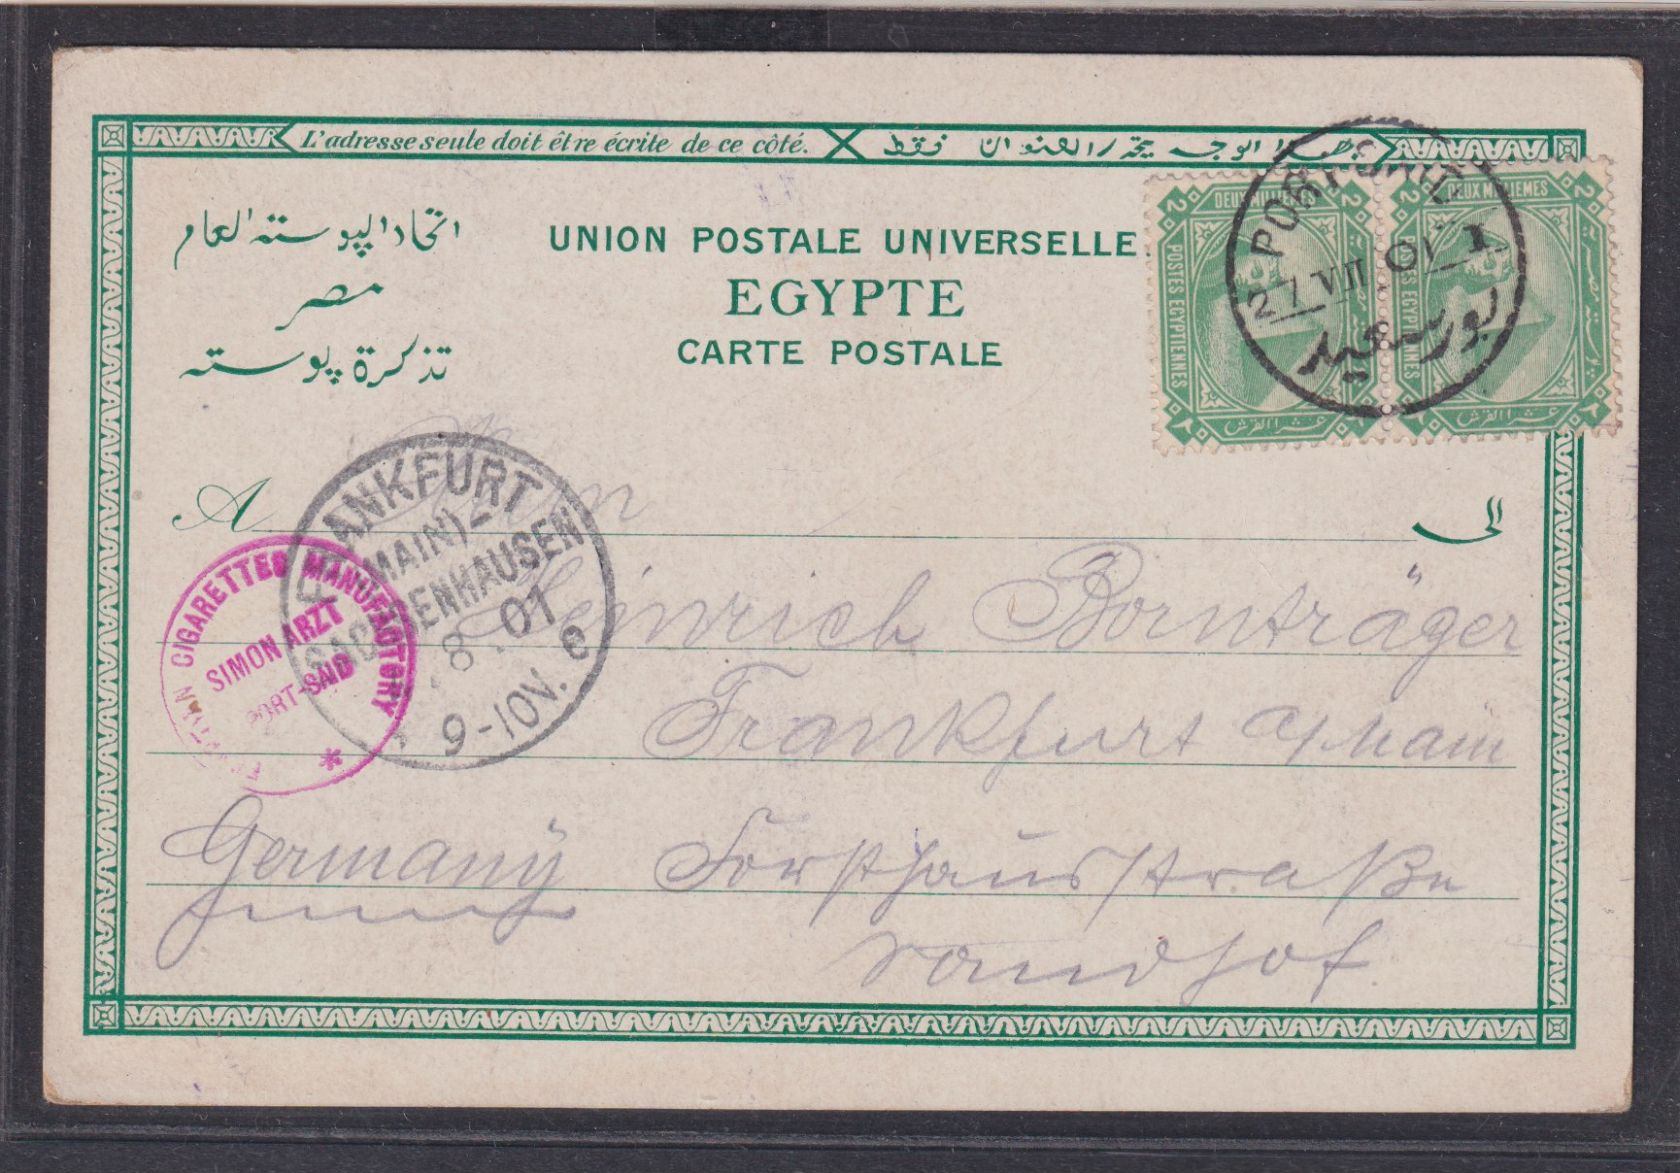 L'adresse seule doit être écrite de ce côté.
فقط
اتحاد البوسته العام
مصر
تذكرة بوسته
UNION POSTALE UNIVERSELLE
EGYPTE
CARTE POSTALE
DEUX MILLIEMES
2
POSTES EGYPTIENNES
عشر القرش
٢
2
DEUX MILLIEMES
2
POSTES EGYPTIENNES
عشر القرش
٢
PORT SAID
VII 01
بورسعيد
A
الى
FRANKFURT
(MAIN)-
SACHSENHAUSEN
8. 01
9-10V.
e
EGYPTIAN CIGARETTES MANUFACTORY
SIMON ARZT
PORT-SAID
*
Herrn
Heinrich Bornträger
Frankfurt a/Main
Germany Forsthausstraße
Sandhof